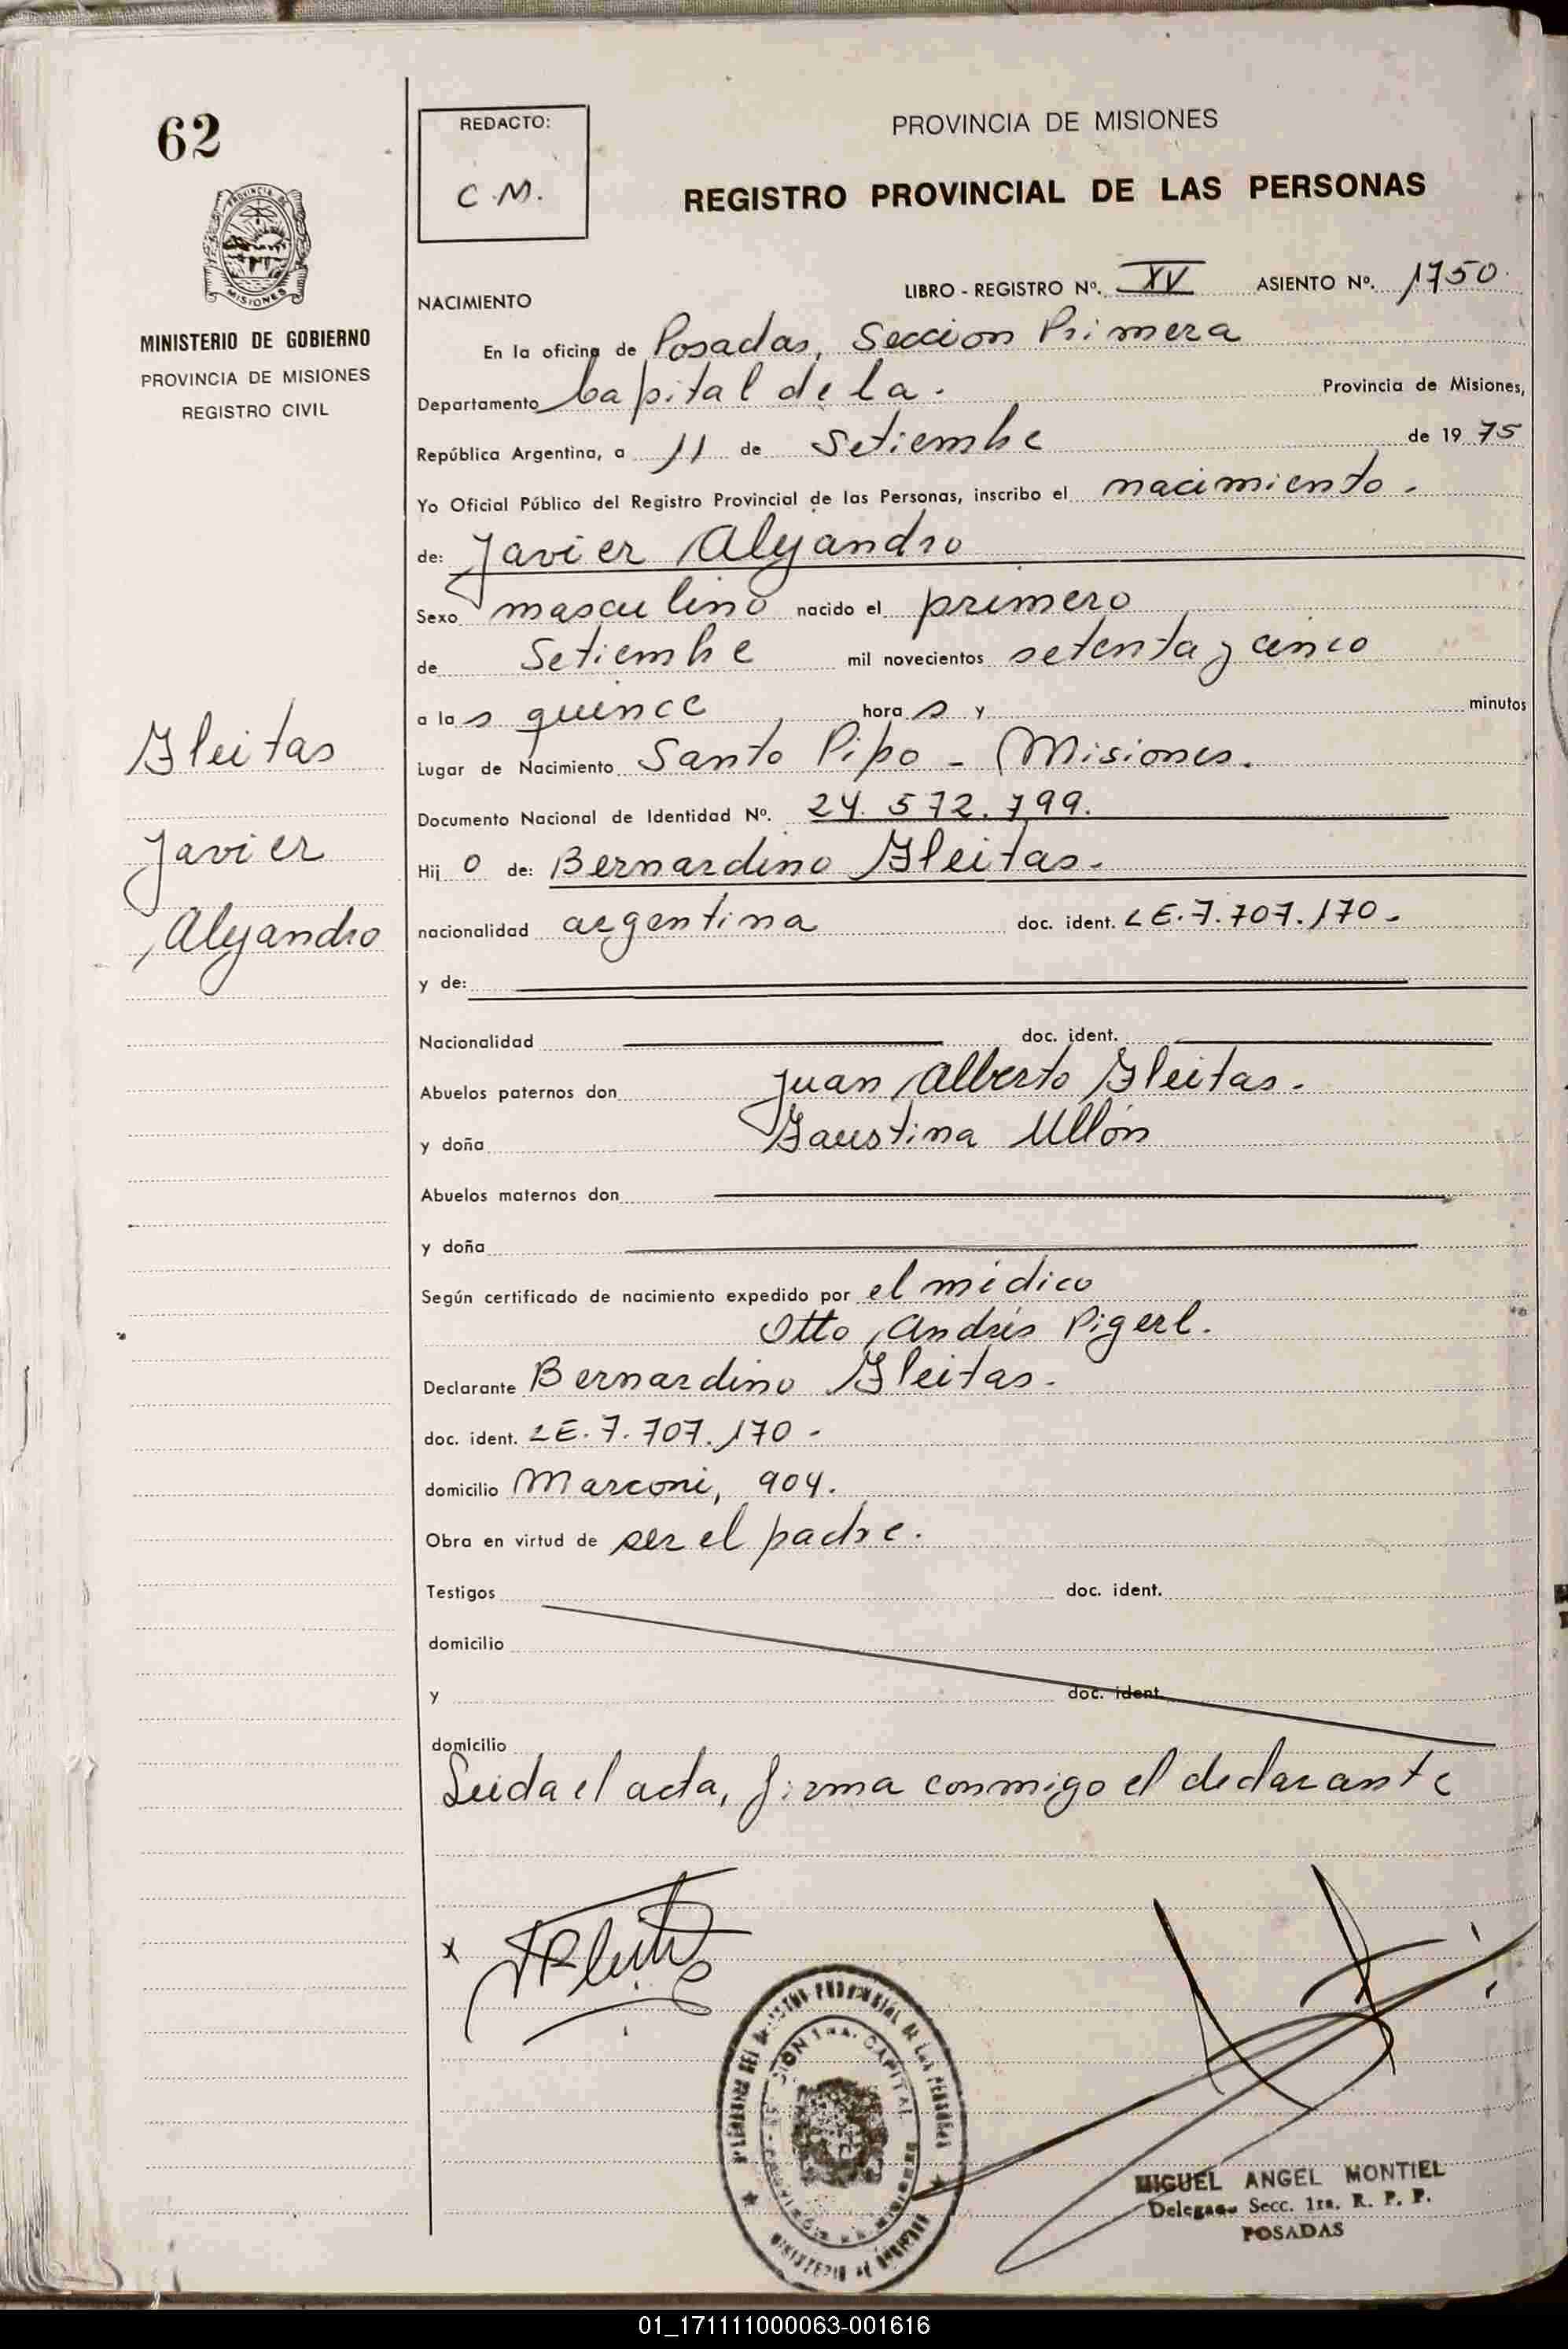 62
PROVINCIA DE
MISIONES
MINISTERIO DE GOBIERNO
PROVINCIA DE MISIONES
REGISTRO CIVIL
Gleitas
Javier
Alejandro
REDACTO:
C.M.
PROVINCIA DE MISIONES
REGISTRO PROVINCIAL DE LAS PERSONAS
LIBRO - REGISTRO Nº. XV ASIENTO Nº. 1750.
NACIMIENTO
En la oficina de Posadas, Seccion Primera
Departamento Capital de la. Provincia de Misiones,
República Argentina, a 11 de Setiembre de 19 75
Yo Oficial Público del Registro Provincial de las Personas, inscribo el nacimiento.
de: Javier Alejandro
Sexo masculino nacido el primero
de Setiembre mil novecientos setenta y cinco
a la s quince hora s y minutos
Lugar de Nacimiento Santo Pipo - Misiones.
Documento Nacional de Identidad Nº. 24.572.799.
Hij o de: Bernardino Gleitas.
nacionalidad argentina doc. ident. LE.7.707.170-
y de:
Nacionalidad doc. ident.
Abuelos paternos don Juan Alberto Gleitas.
y doña Faustina Ullón
Abuelos maternos don
y doña
Según certificado de nacimiento expedido por el médico
Otto Andrés Pigerl.
Declarante Bernardino Gleitas.
doc. ident. LE.7.707.170-
domicilio Marconi, 904.
Obra en virtud de ser el padre.
Testigos doc. ident.
domicilio
y doc. ident.
domicilio
Leida el acta, firma conmigo el declarante
x
MIGUEL ANGEL MONTIEL
Delegado Secc. 1ra. R. P. P.
POSADAS
01_171111000063-001616